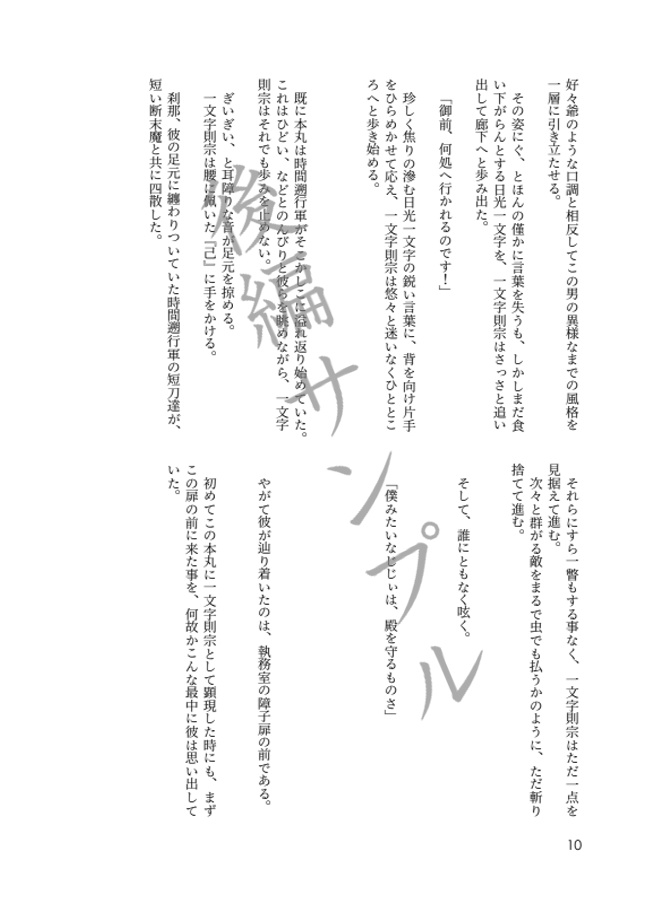 好々爺のような口調と相反してこの男の異様なまでの風格を
一層に引き立たせる。
その姿にぐ、とほんの僅かに言葉を失うも、しかしまだ食
い下がらんとする日光一文字を、一文字則宗はさっさと追い
出して廊下へと歩み出た。
「御前、何処へ行かれるのです！」
珍しく焦りの滲む日光一文字の鋭い言葉に、背を向け片手
をひらめかせて応え、一文字則宗は悠々と迷いなくひととこ
ろへと歩き始める。
既に本丸は時間遡行軍がそこかしこに溢れ返り始めていた。
これはひどい、などとのんびりと彼らを眺めながら、一文字
則宗はそれでも歩みを止めない。
ぎいぎい、と耳障りな音が足元を掠める。
一文字則宗は腰に佩いた『己』に手をかける。
刹那、彼の足元に纏わりついていた時間遡行軍の短刀達が、
短い断末魔と共に四散した。
それらにすら一瞥もする事なく、一文字則宗はただ一点を
見据えて進む。
次々と群がる敵をまるで虫でも払うかのように、ただ斬り
捨てて進む。
そして、誰にともなく呟く。
「僕みたいなじじぃは、殿を守るものさ」
やがて彼が辿り着いたのは、執務室の障子扉の前である。
初めてこの本丸に一文字則宗として顕現した時にも、まず
この扉の前に来た事を、何故かこんな最中に彼は思い出して
いた。
後編サンプル
10